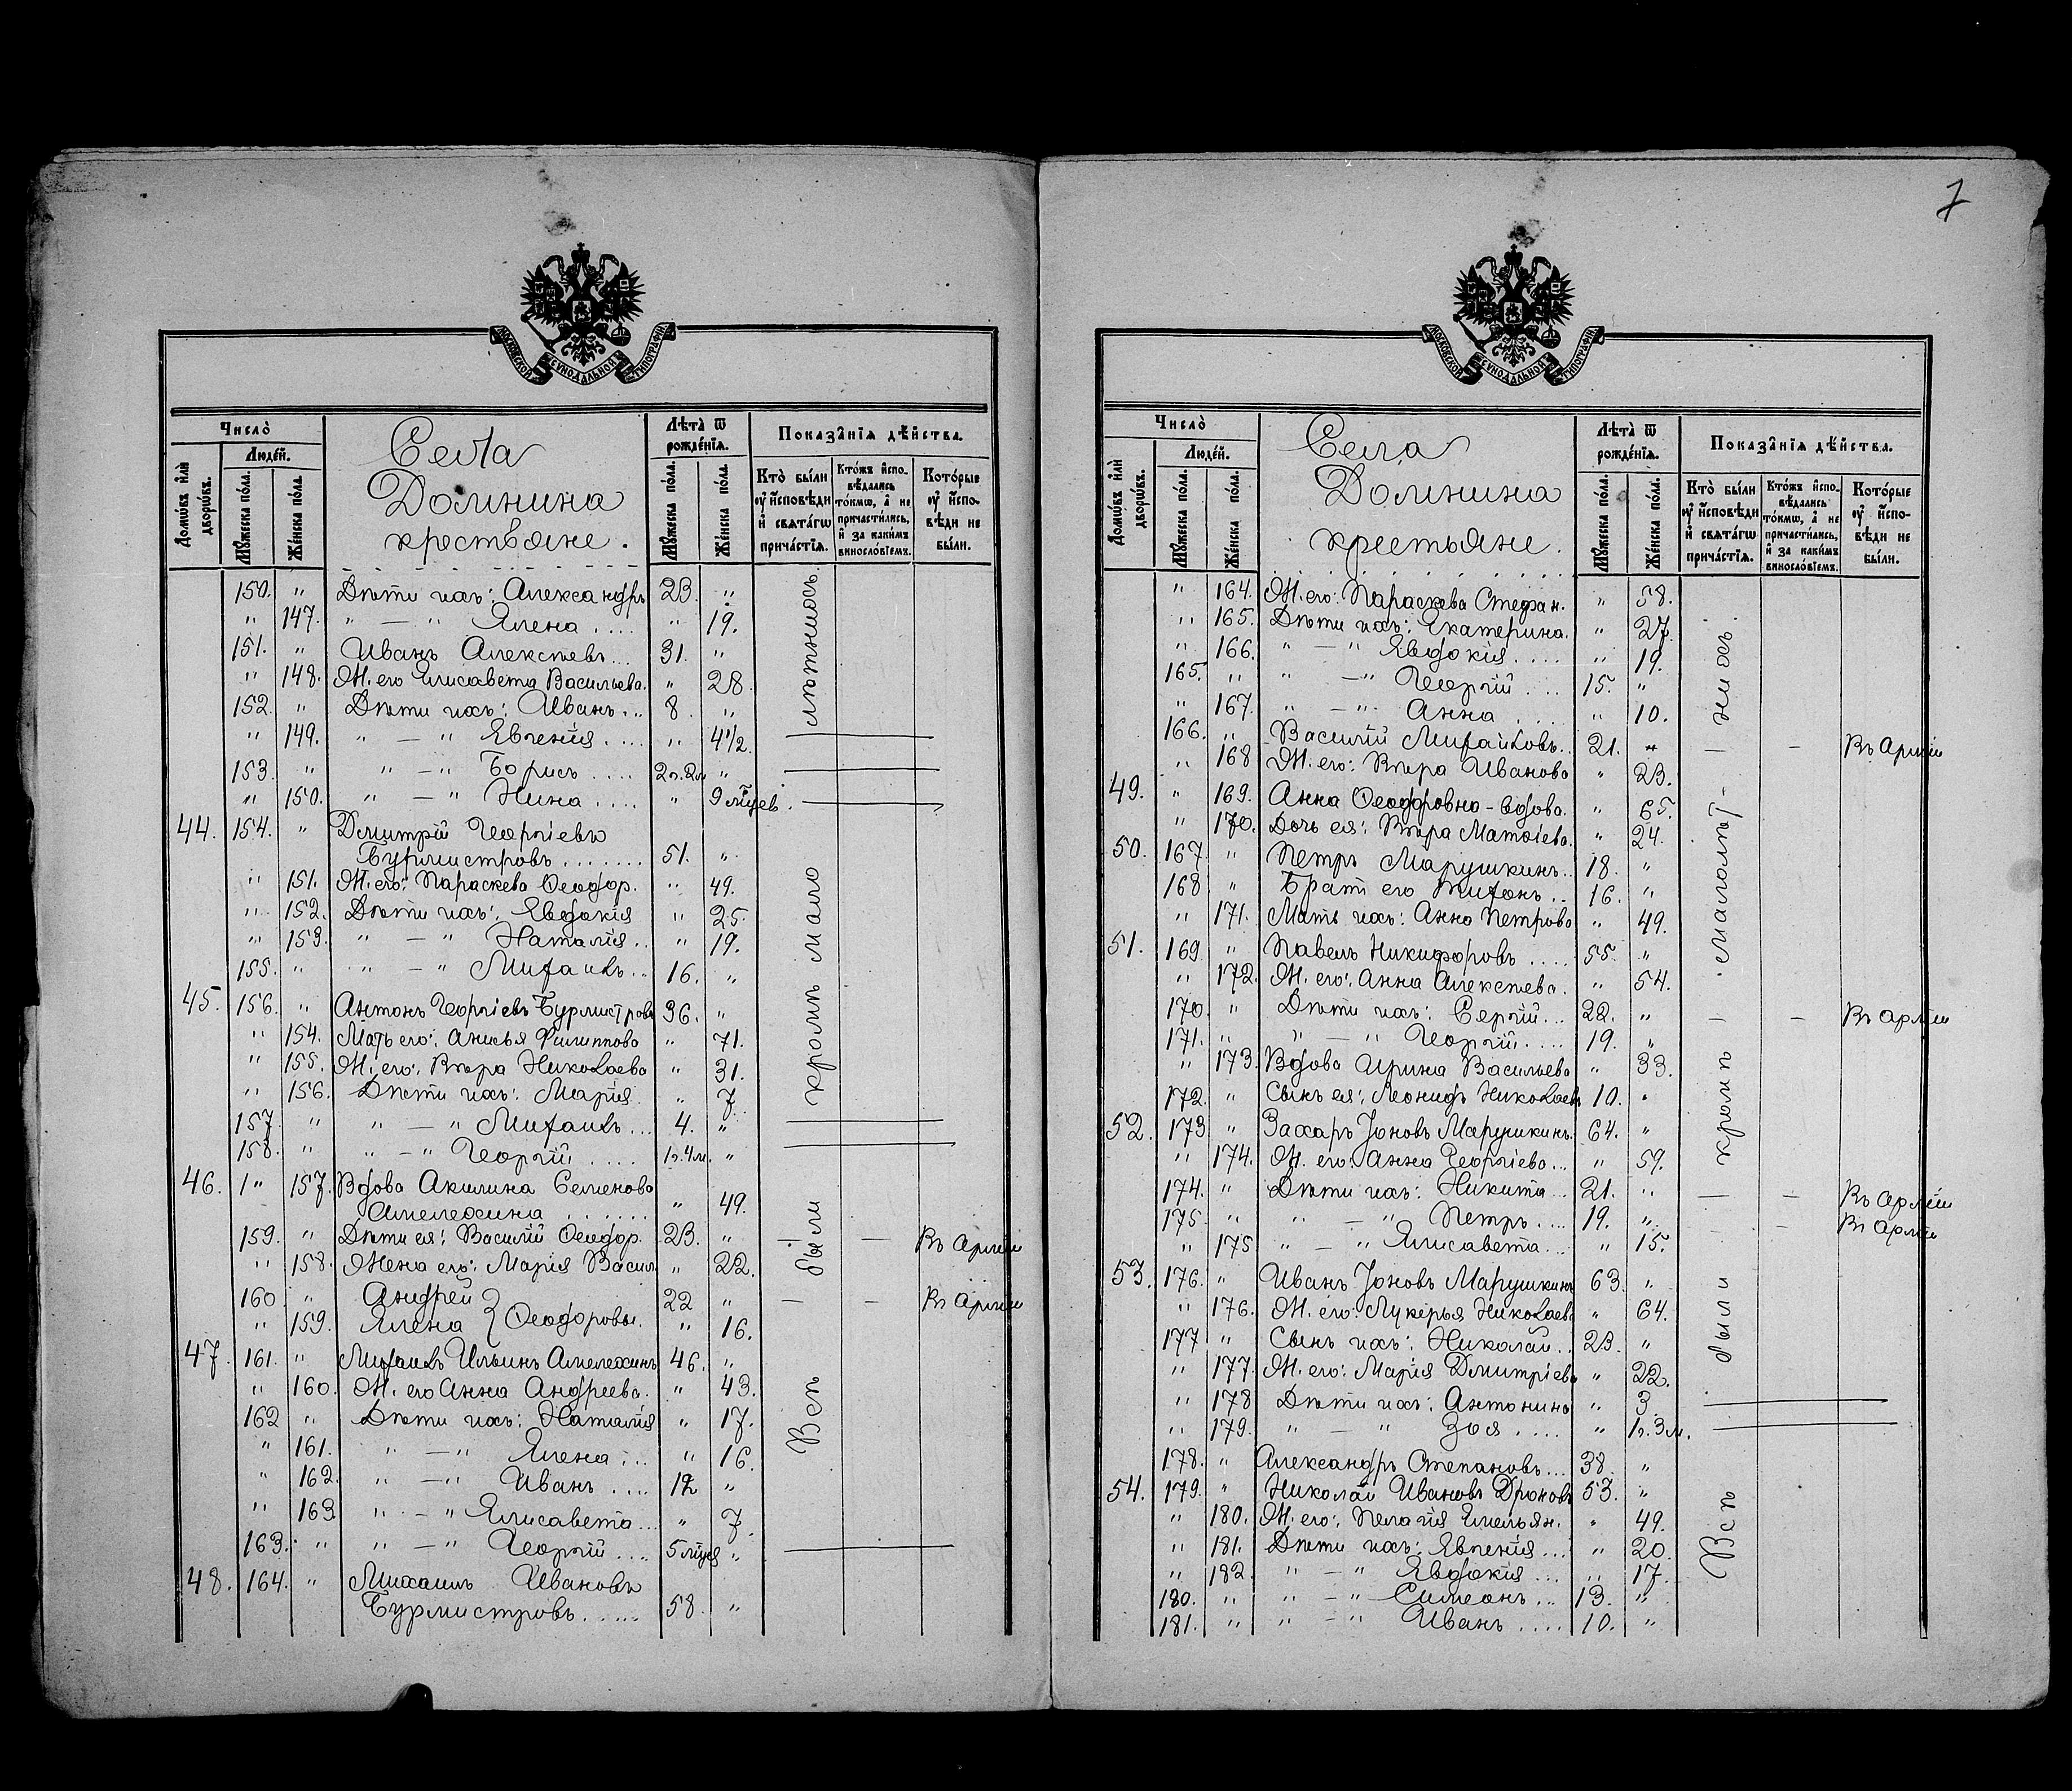 7
МОСКОВСКОЙ СУНОДАЛЬНОЙ ТИПОГРАФІИ
Число̀
Людéй.
Домѡ́въ и҆лѝ дворѡ́въ.
Мꙋ́жеска по́ла.
Же́нска по́ла.
Села
Домнина
крестьяне.
Лѣ́та ѿ рожде́нїѧ.
Мꙋ́жеска по́ла.
Же́нска по́ла.
Показа̂нїѧ дѣ́йства.
Кто̀ бы́ли ᲂу҆ и҆сповѣ́ди и҆ свѧта́гѡ прича́стїѧ.
Кто́жъ и҆спо-вѣ́дались то́кмѡ, а҆ не причасти́лись, и҆ за каки́мъ винослоᲂ́вїемъ.
Кото́рые ᲂу҆ и҆спо-вѣ́ди не бы́ли.
150. " Дѣти ихъ: Александръ 23. "
" 147. " — " Елена .... " 19.
151. " Иванъ Алексѣевъ... 31. "
" 148. Ж. его Елисавета Васильева. " 28.
152. " Дѣти ихъ: Иванъ... 8. "
" 149. " — " Евгенія.... " 4 1/2.
153. " " — " Борисъ.... 2 г. 2 м "
" 150. " — " Нина.... " 9 м҃цев.
44. 154. " Димитрій Георгіевъ
Бурмистровъ....... 51. "
" 151. Ж. его: Параскева Ѳеодор. " 49.
" 152. Дѣти ихъ: Евдокія " 25.
" 153. " — " Наталія.. " 19.
155. " " — " Михаилъ.. 16. "
45. 156. " Антонъ Георгіевъ Бурмистровъ 36. "
" 154. Мать его: Анисья Филиппова " 71.
" 155. Ж. его: Вѣра Николаева " 31.
" 156. Дѣти ихъ: Марія. " 7.
157. " " — " Михаилъ... 4. "
158. " " — " Георгій.... 1 г. 4 м. "
46. 1" 157. Вдова Акилина Семенова
Амелехина....... " 49.
159. " Дѣти ея: Василій Ѳеодор. 23. " — — Въ арміи
" 158. Жена его: Марія Васил " 22.
160. " Андрей } 22 " — — Въ арміи
" 159. Елена } Ѳеодоровы. " 16.
47. 161. " Михаилъ Ильинъ Амелехинъ 46. "
" 160. Ж. его Анна Андреева. " 43.
162 " Дѣти ихъ: Наталія " 17.
" 161. " — " Елена... " 16.
" 162. " — " Иванъ.... 12 "
" 163. " — " Елисавета... " 7.
163. " " — " Георгій.... 5 м҃цев "
48. 164. " Михаилъ Ивановъ
Бурмистровъ...... 58. "
Всѣ были кромѣ мало лѣтнихъ
МОСКОВСКОЙ СУНОДАЛЬНОЙ ТИПОГРАФІИ
Число̀
Людéй.
Домѡ́въ и҆лѝ дворѡ́въ.
Мꙋ́жеска по́ла.
Же́нска по́ла.
Села
Домнина
крестьяне.
Лѣ́та ѿ рожде́нїѧ.
Мꙋ́жеска по́ла.
Же́нска по́ла.
Показа̂нїѧ дѣ́йства.
Кто̀ бы́ли ᲂу҆ и҆сповѣ́ди и҆ свѧта́гѡ прича́стїѧ.
Кто́жъ и҆спо-вѣ́дались то́кмѡ, а҆ не причасти́лись, и҆ за каки́мъ винословїемъ.
Кото́рые ᲂу҆ и҆спо-вѣ́ди не бы́ли.
" 164. Ж. его: Параскева Стефан. " 58.
" 165. Дѣти ихъ: Екатерина. " 27.
" 166. " — " Евдокія.... " 19.
165. " " — " Георгій.... 15. "
" 167. " — " Анна.... " 10.
166. " Василій Михайловъ.. 21. " — — Въ арміи
" 168 Ж. его: Вѣра Иванова " 23.
49. " 169. Анна Ѳеодоровна - вдова. " 65.
" 170. Дочь ея: Вѣра Матѳіева. " 24.
50. 167. " Петръ Марушкинъ.. 18. "
168 " Братъ его Тихонъ.. 16. "
" 171. Мать ихъ: Анна Петрова " 49.
51. 169. " Павелъ Никифоровъ.... 55. "
" 172. Ж. его: Анна Алексѣева. " 54.
170. " Дѣти ихъ: Сергій... 22. " — — Въ арміи
171. " " — " Георгій.... 19. "
" 173. Вдова Ирина Васильева " 33.
172. " Сынъ ея: Леонидъ Николаевъ 10. "
52. 173 " Захаръ Іоновъ Марушкинъ. 64. "
" 174. Ж. его: Анна Георгіева... " 59.
174. " Дѣти ихъ: Никита... 21. " — — Въ арміи
175. " " — " Петръ.... 19. " — — Въ арміи
" 175 " — " Елисавета... " 15.
53. 176. " Иванъ Іоновъ Марушкинъ 63. "
" 176. Ж. его: Лукерья Николаев " 64.
177 " Сынъ ихъ: Николай.. 23. "
" 177. Ж. его: Марія Димитріева " 22.
" 178 Дѣти ихъ: Антонина " 3.
" 179. " — " Зоя.... " 1 г. 3 м.
178. " Александръ Степановъ... 38. "
54. 179. " Николай Ивановъ Дроновъ 53. "
" 180. Ж. его: Пелагія Емельян. " 49.
" 181. Дѣти ихъ: Евгенія... " 20.
" 182. " — " Евдокія... " 17.
180. " " — " Симеонъ... 13. "
181. " " — " Иванъ.... 10. "
Всѣ были кромѣ малолѣт- нихъ.